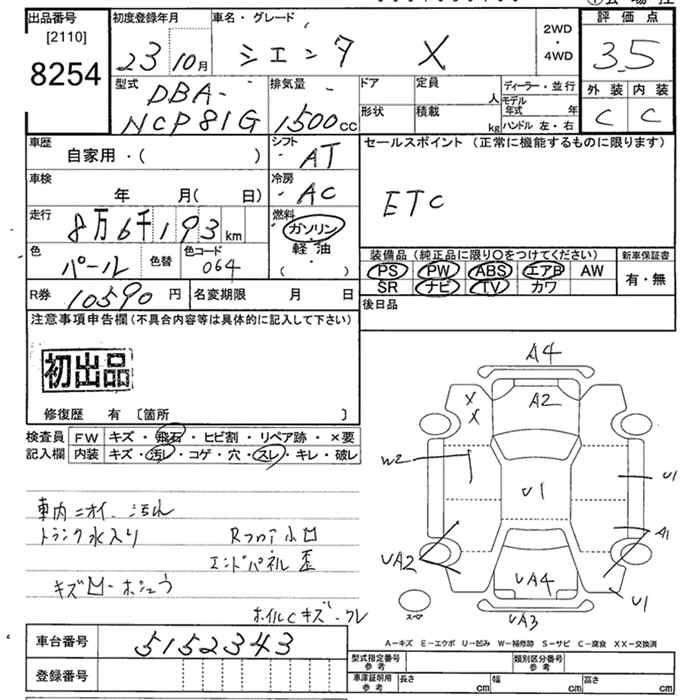 出品番号
[2110]
8254
初度登録年月
23 10月
車名・グレード
シエンタ X
2WD
・
4WD
評価点
3.5
外装 内装
C C
型式
DBA-
NCP81G
排気量
1500cc
ドア
形状
定員
人
積載
kg
ディーラー・並行
モデル年式 年
ハンドル 左・右
車歴
自家用・( )
シフト
AT
セールスポイント (正常に機能するものに限ります)
ETC
車検
年 月( 日)
冷房
AC
走行
8万6千193km
燃料
ガソリン
・
軽油
( )
色
パール
色替
色コード
064
装備品 (純正品に限り○をつけてください)
PS PW ABS エアB AW
SR ナビ TV カワ
新車保証書
有・無
R券 10590円
名変期限 月 日
後日品
注意事項申告欄(不具合内容等は具体的に記入して下さい)
初出品
修復歴 有 [箇所 ]
検査員記入欄
FW キズ・飛石・ヒビ割・リペア跡・×要
内装 キズ・汚レ・コゲ・穴・スレ・キレ・破レ
車内ニオイ 汚れ
トランク水入り
エンドパネル歪
A4
A2
X
X
W2
U1
U1
A1
UA2
UA4
U1
UA3
スペア
A-キズ E-エクボ U-凹み W-補修跡 S-サビ C-腐食 XX-交換済
車台番号 5152343
登録番号
型式指定番号参考
類別区分番号参考
車庫証明用参考
長さ cm
幅 cm
高さ cm